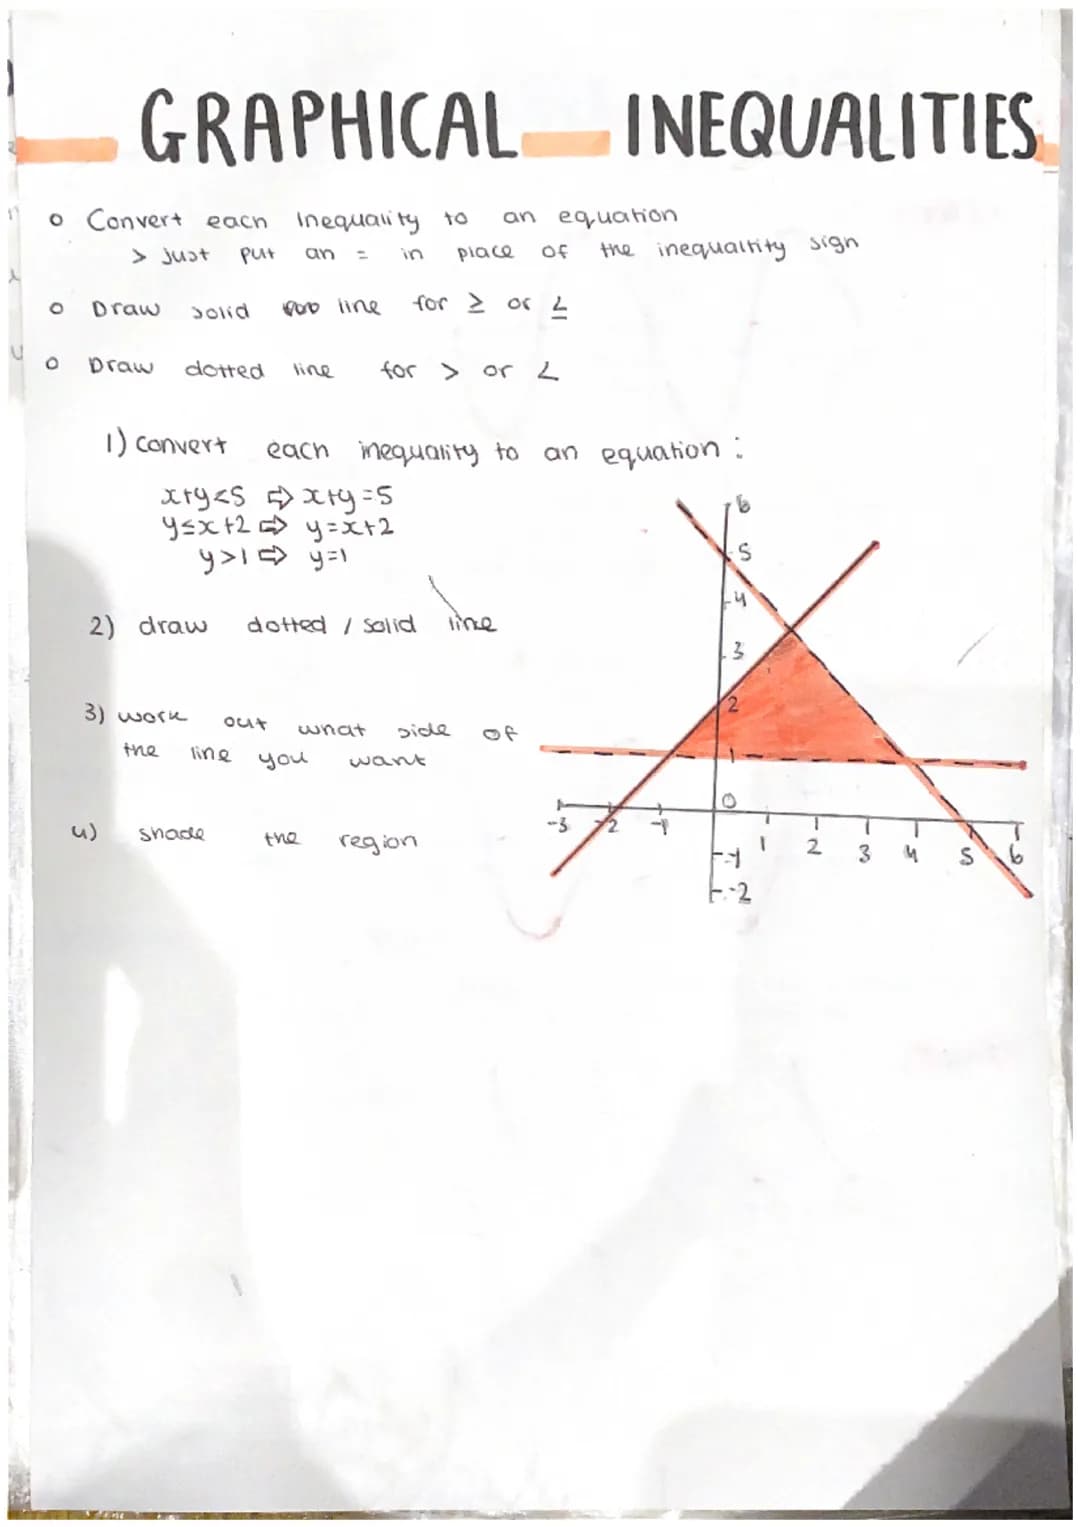 GRAPHICAL INEQUALITIES
o Convert each inequality to an equation
> Just put an = in place of the inequaltity sign
o Draw solid line for ≥ or ≤
o Draw dotted line for > or <
1) convert each inequality to an equation :
x+y<5 ⇨ x+y=5
y≤x+2 ⇨ y=x+2
y>1 ⇨ y=1
2) draw dotted / solid line
3) work out what side of
the line you want
4) shade the region
6
5
4
3
2
1
0
-3 -2 -1 1 2 3 4 5 6
-1
-2